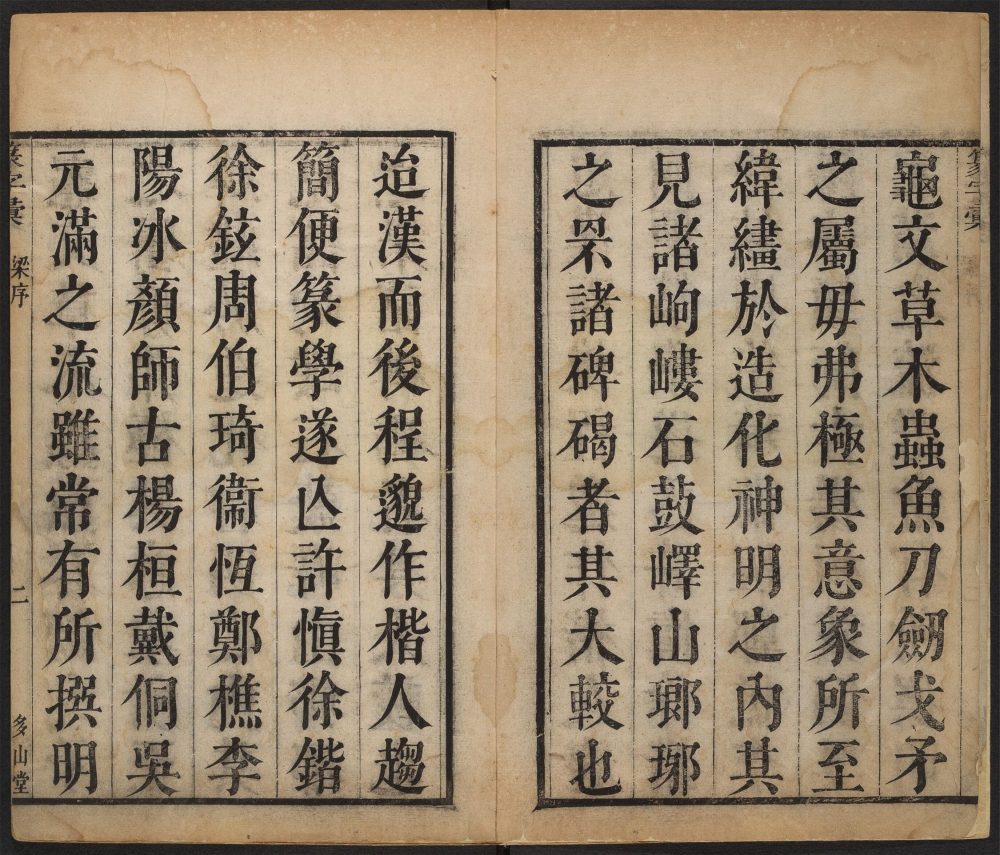 龜文草木蟲魚刀劒戈矛
之屬毋弗極其意象所至
緯繣於造化神明之內其
見諸岣嶁石鼓嶧山瑯琊
之罘諸碑碣者其大較也
迨漢而後程邈作楷人趨
簡便篆學遂亾許愼徐鍇
徐鉉周伯琦衞恆鄭樵李
陽冰顏師古楊桓戴侗吳
元滿之流雖常有所撰明
篆字彙 梁序 二 多山堂
篆字彙